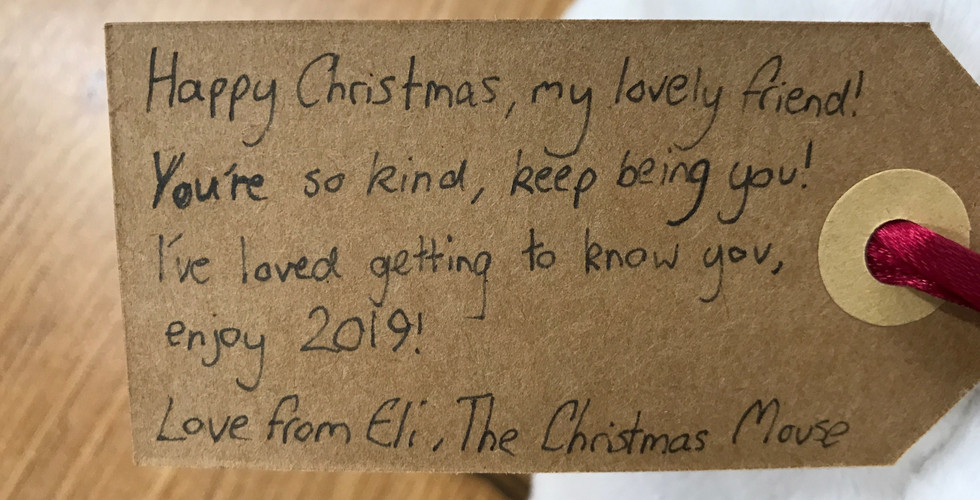 Happy Christmas, my lovely friend!
You're so kind, keep being you!
I've loved getting to know you,
enjoy 2019!
Love from Eli, The Christmas Mouse